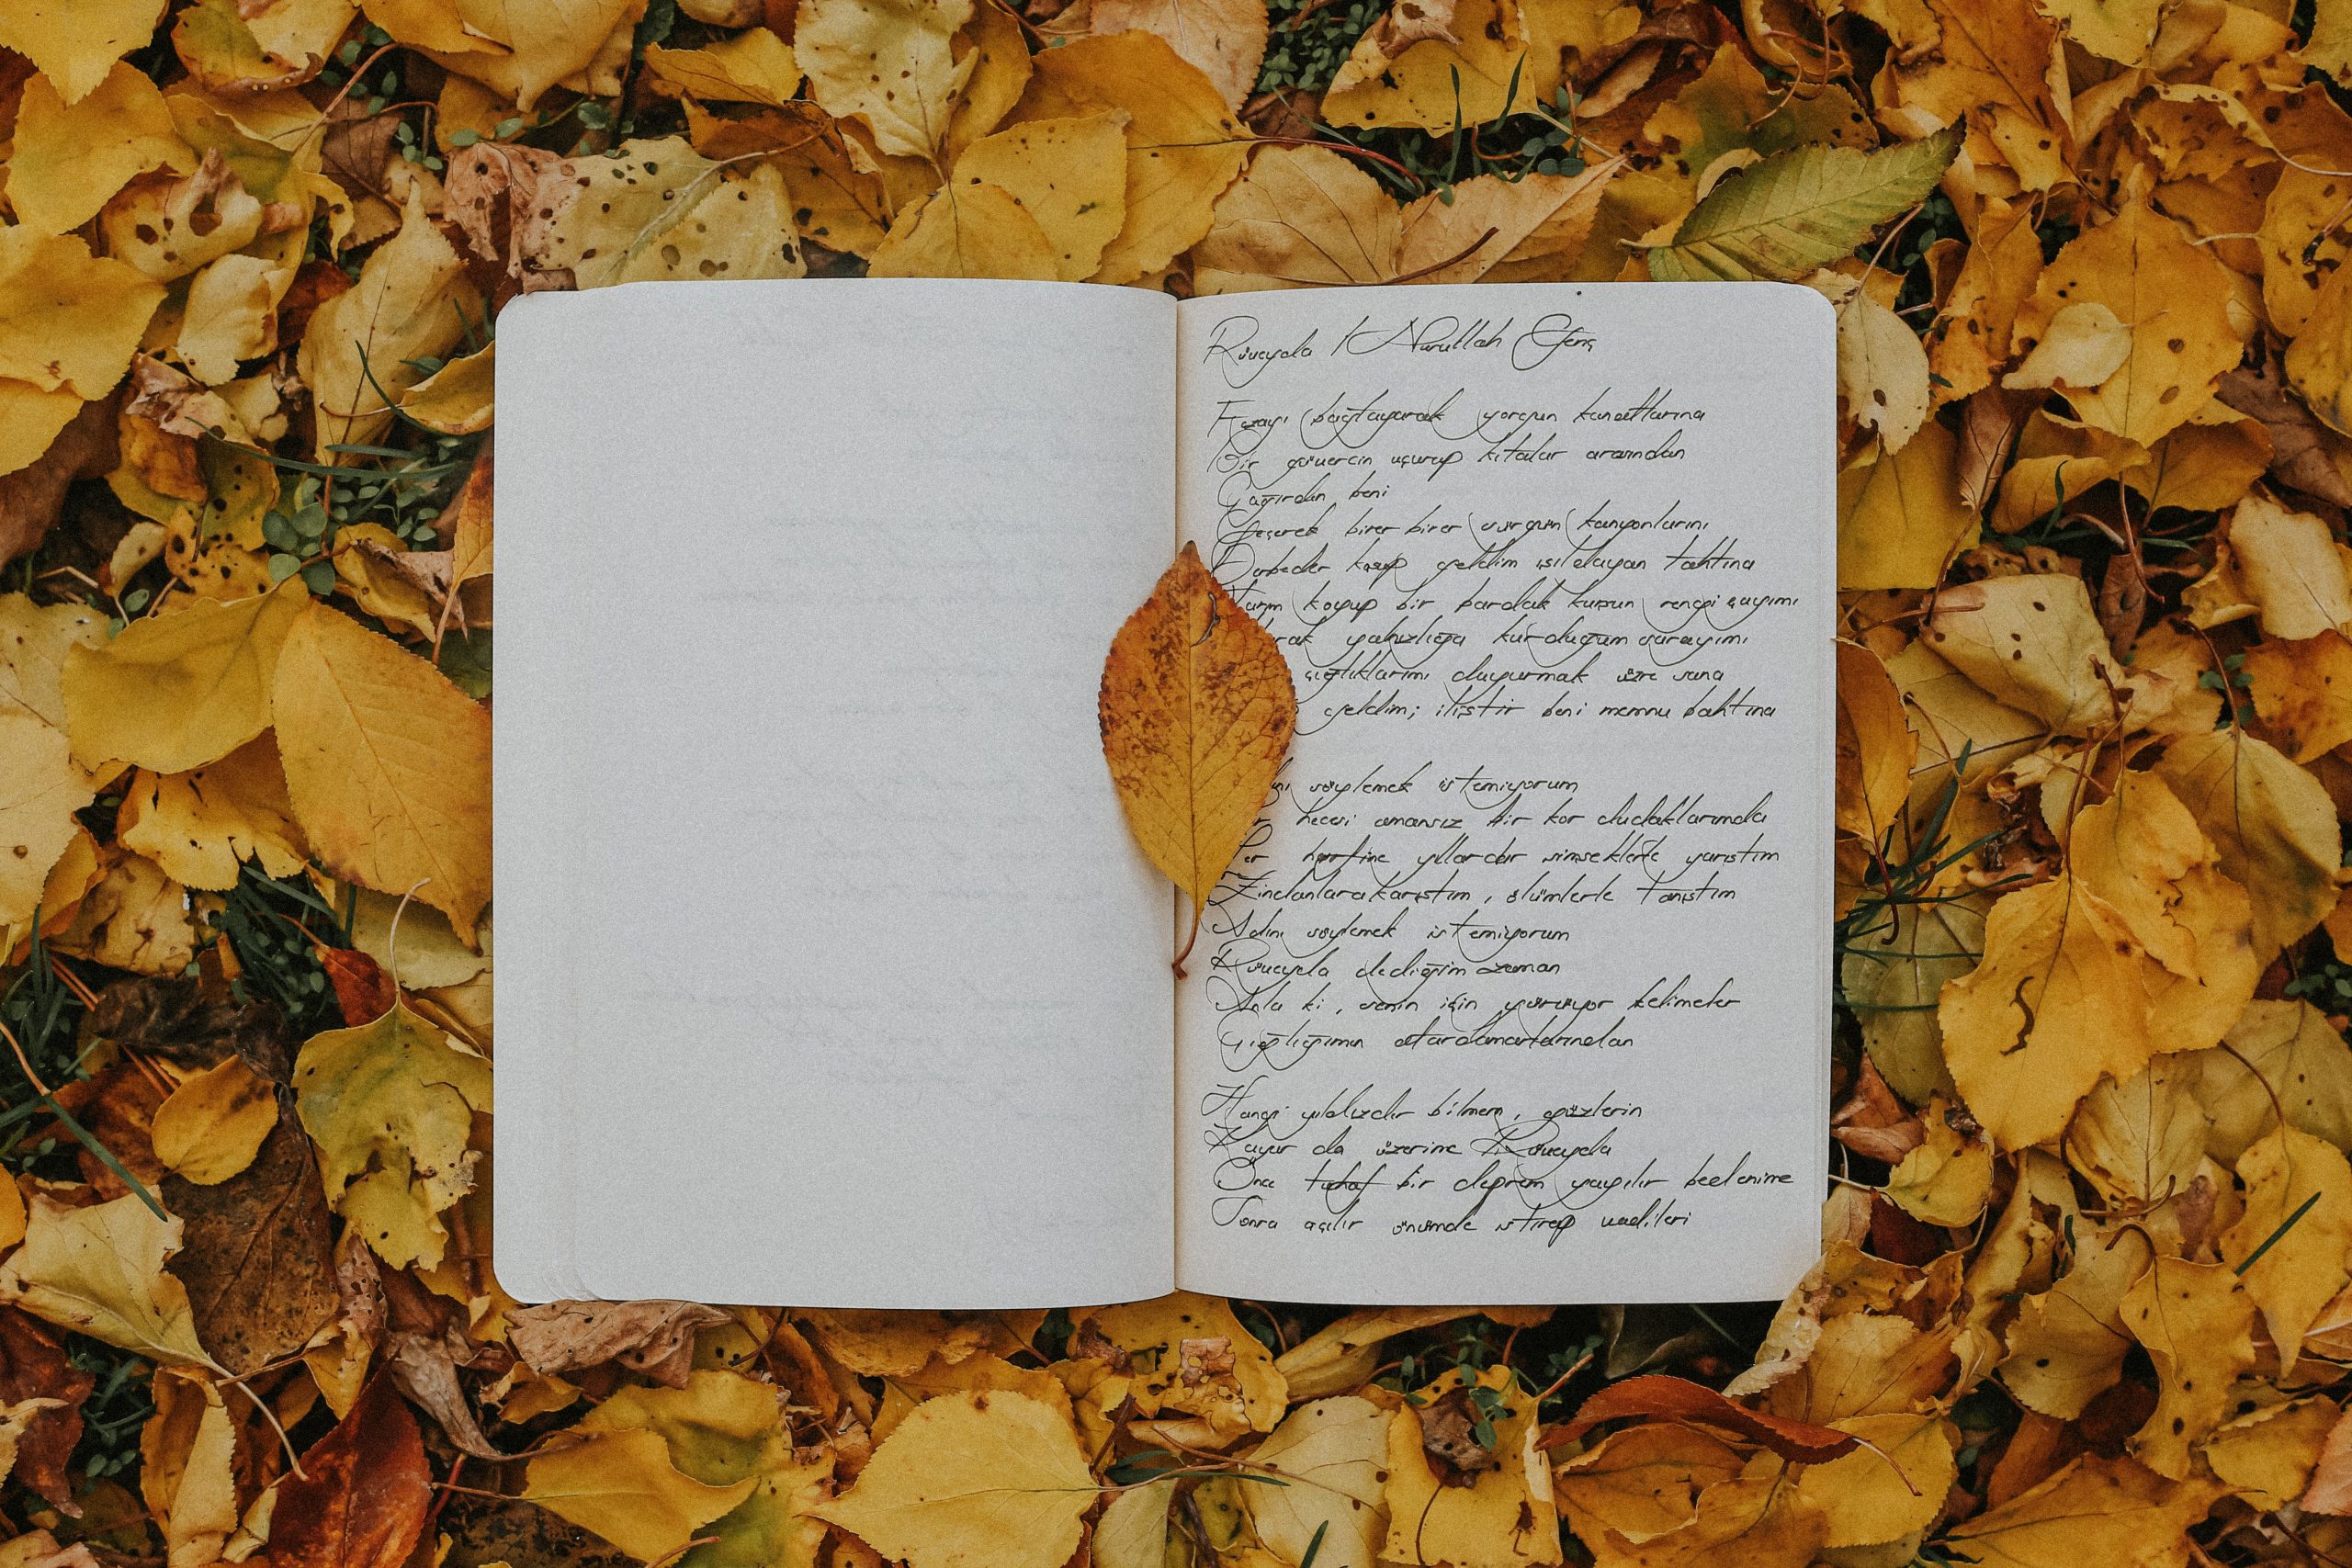 Rüveyda / Nurullah Genç
Fezayı bağlayarak yorgun kanatlarına
Bir güvercin uçurup kıtalar arasından
Çağırdın beni
Geçerek birer birer sürgün kanyonlarını
Derbeder koşup geldim ışıldayan tahtına
Yarım koyup bir bardak kurşun rengi çayımı
yalnızlığa kurduğum sarayımı
çığlıklarımı duyurmak üzre sana
geldim; iliştir beni memnu bahtına
söylemek istemiyorum
hecesi amansız bir kor dudaklarımda
Her harfine yıllardır şimşeklerle yarıştım
Zindanlara karıştım, ölümlerle tanıştım
Adını söylemek istemiyorum
Rüveyda dediğim zaman
Anla ki, senin için yürüyor kelimeler
Çığlığımın atardamarlarından
Hangi yıldızdır bilmem, gözlerin
Kayar da üzerime Rüveyda
Önce tuhaf bir deprem yayılır bedenime
Sonra açılır önümde ıstırap vadileri